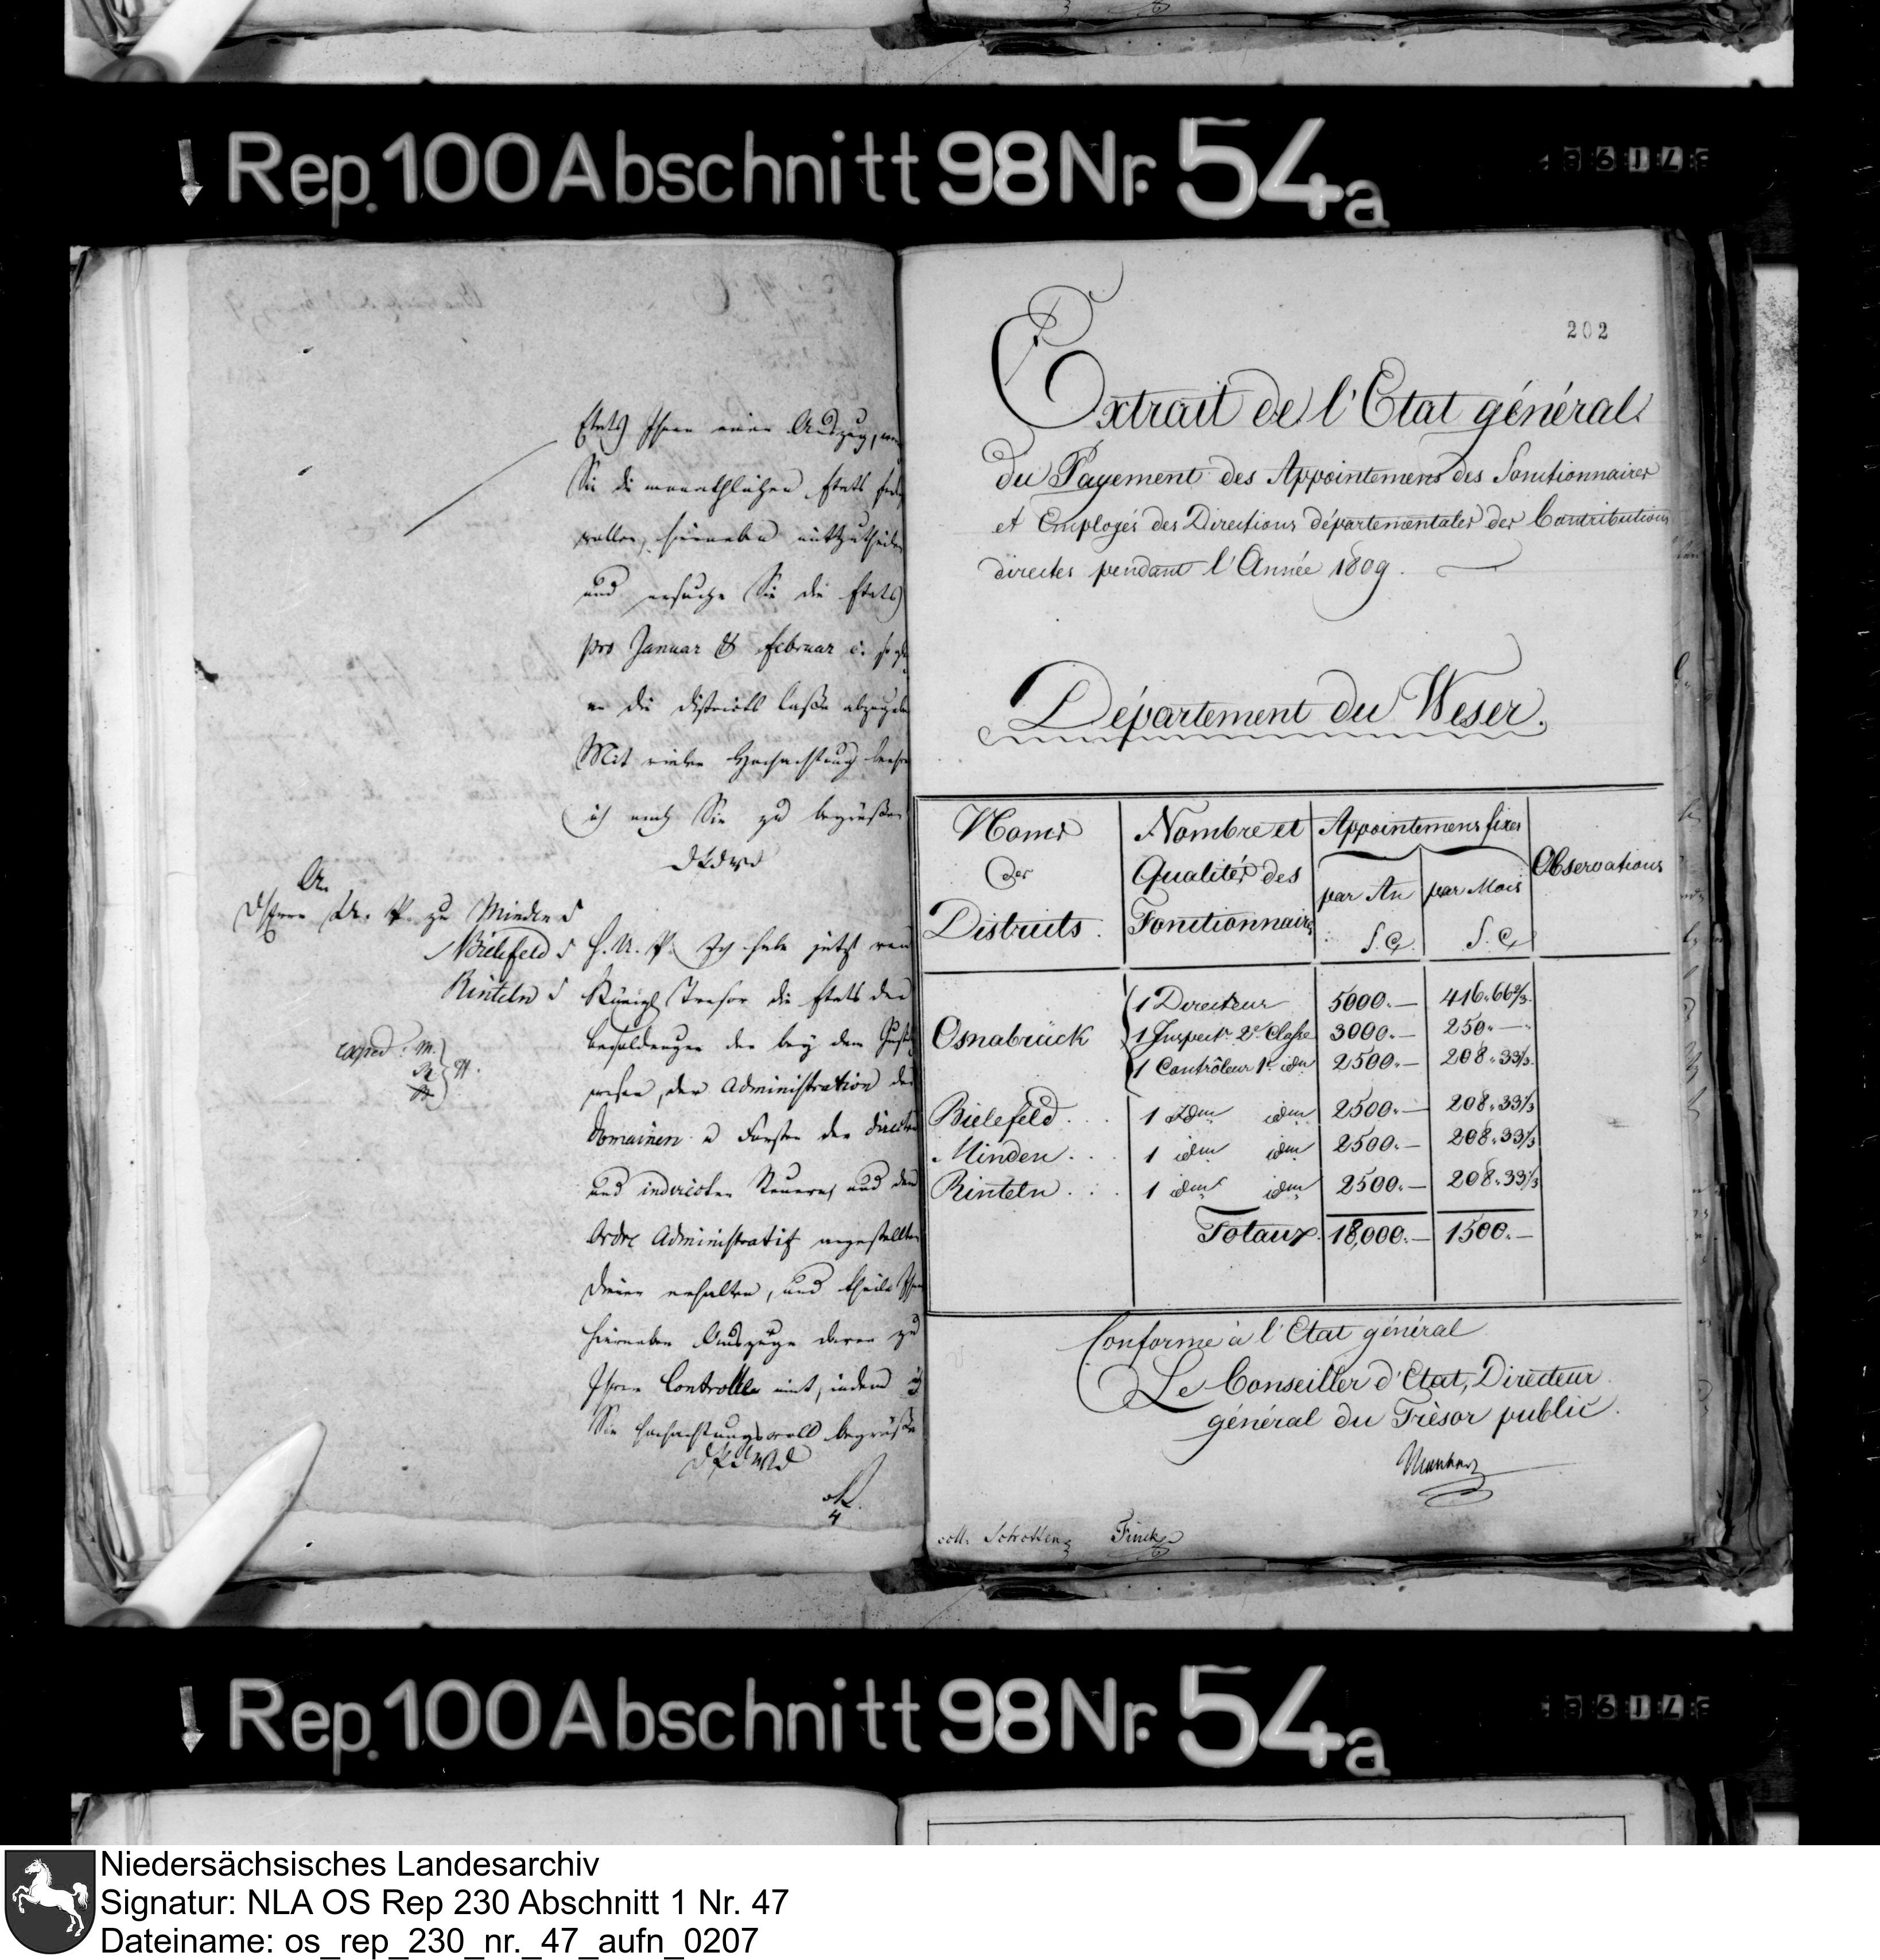 Rep. 100 Abschnitt 98 Nr. 54a
Etats Ihnen einen Auszug,
Sie die monathlichen Etats
wollen, hierneben mitzutheilen
und ersuche Sie die Etats
pro Januar & Februar c.
an die Districts Casse abzugeben
Mit vieler Hochachtung
ich auch Sie zu begrüßen
DPdWD
An
U. P. zu Minden
Bielefeld
Rinteln
H. U. P. Ich habe jetzt von
Königl Tresor die Etats der
Besoldungen der bey dem
wesen, der Administration der
Domainen u Forsten der directen
und indirecten Steuern, und dem
Ordre Administratif angestellten
Diener erhalten, und theile
hierneben Auszüge davon zu
Ihrer Controlle mit, indem ich
Sie hochachtungsvoll begrüße
DPdWD
202
Extrait de l'Etat général
du Payement des Appointemens des Fonctionnaires
et Employés des Directions départementales des Contributions
directes pendant l'Année 1809.
Département du Weser.
Noms des Districts.
Nombre et Qualités des Fonctionnaires
Appointemens fixes
par An par Mois
f. C. f. C.
Observations
Osnabrück
1 Directeur 5000.— 416.66 2/3
1 Inspectr. 2e Classe 3000.— 250.—
1 Contrôleur 1r. idm 2500.— 208.33 1/3
Bielefeld . . . 1 idm idm 2500.— 208.33 1/3
Minden . . . 1 idm idm 2500.— 208.33 1/3
Rinteln . . . 1 idm idm 2500.— 208.33 1/3
Totaux. 18,000.— 1500.—
Conforme à l'Etat général
Le Conseiller d'Etat, Directeur
général du Trèsor public.
coll. Finck
Rep. 100 Abschnitt 98 Nr. 54a
Niedersächsisches Landesarchiv
Signatur: NLA OS Rep 230 Abschnitt 1 Nr. 47
Dateiname: os_rep_230_nr._47_aufn_0207